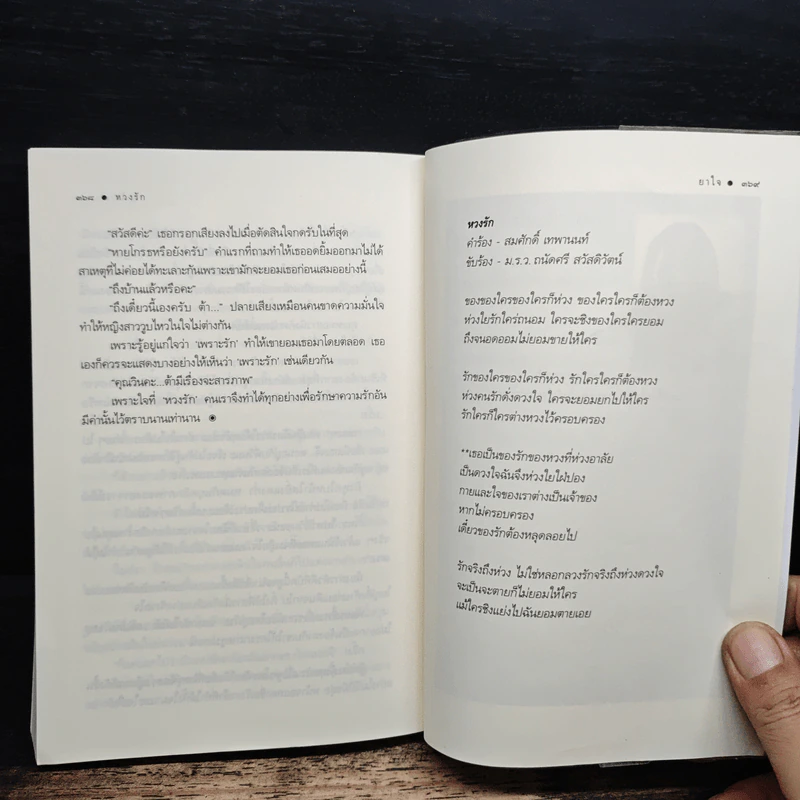 ๓๖๘ ● หวงรัก
“สวัสดีค่ะ” เธอกรอกเสียงลงไปเมื่อตัดสินใจกดรับในที่สุด
“หายโกรธหรือยังครับ” คำแรกที่ถามทำให้เธออดยิ้มออกมาไม่ได้
สาเหตุที่ไม่ค่อยได้ทะเลาะกันเพราะเขามักจะยอมเธอก่อนเสมออย่างนี้
“ถึงบ้านแล้วหรือคะ”
“ถึงเดี๋ยวนี้เองครับ ต้า...” ปลายเสียงเหมือนคนขาดความมั่นใจ
ทำให้หญิงสาววูบไหวในใจไม่ต่างกัน
เพราะรู้อยู่แก่ใจว่า ‘เพราะรัก’ ทำให้เขายอมเธอมาโดยตลอด เธอ
เองก็ควรจะแสดงบางอย่างให้เห็นว่า ‘เพราะรัก’ เช่นเดียวกัน
“คุณวินคะ...ต้ามีเรื่องจะสารภาพ”
เพราะใจที่ ‘หวงรัก’ คนเราจึงทำได้ทุกอย่างเพื่อรักษาความรักอัน
มีค่านั้นไว้ตราบนานเท่านาน ◉
ยาใจ ● ๓๖๙
หวงรัก
คำร้อง - สมศักดิ์ เทพานนท์
ขับร้อง - ม.ร.ว. ถนัดศรี สวัสดิวัตน์
ของของใครของใครก็ห่วง ของใครใครก็ต้องหวง
ห่วงใยรักใคร่ถนอม ใครจะชิงของใครใครยอม
ถึงจนอดออมไม่ยอมขายให้ใคร
รักของใครของใครก็ห่วง รักใครใครก็ต้องหวง
ห่วงคนรักดั่งดวงใจ ใครจะยอมยกไปให้ใคร
รักใครก็ใครต่างหวงไว้ครอบครอง
**เธอเป็นของรักของหวงที่ห่วงอาลัย
เป็นดวงใจฉันจึงห่วงใยใฝ่ปอง
กายและใจของเราต่างเป็นเจ้าของ
หากไม่ครอบครอง
เดี๋ยวของรักต้องหลุดลอยไป
รักจริงถึงห่วง ไม่ใช่หลอกลวงรักจริงถึงห่วงดวงใจ
จะเป็นจะตายก็ไม่ยอมให้ใคร
แม้ใครชิงแย่งไปฉันยอมตายเอย